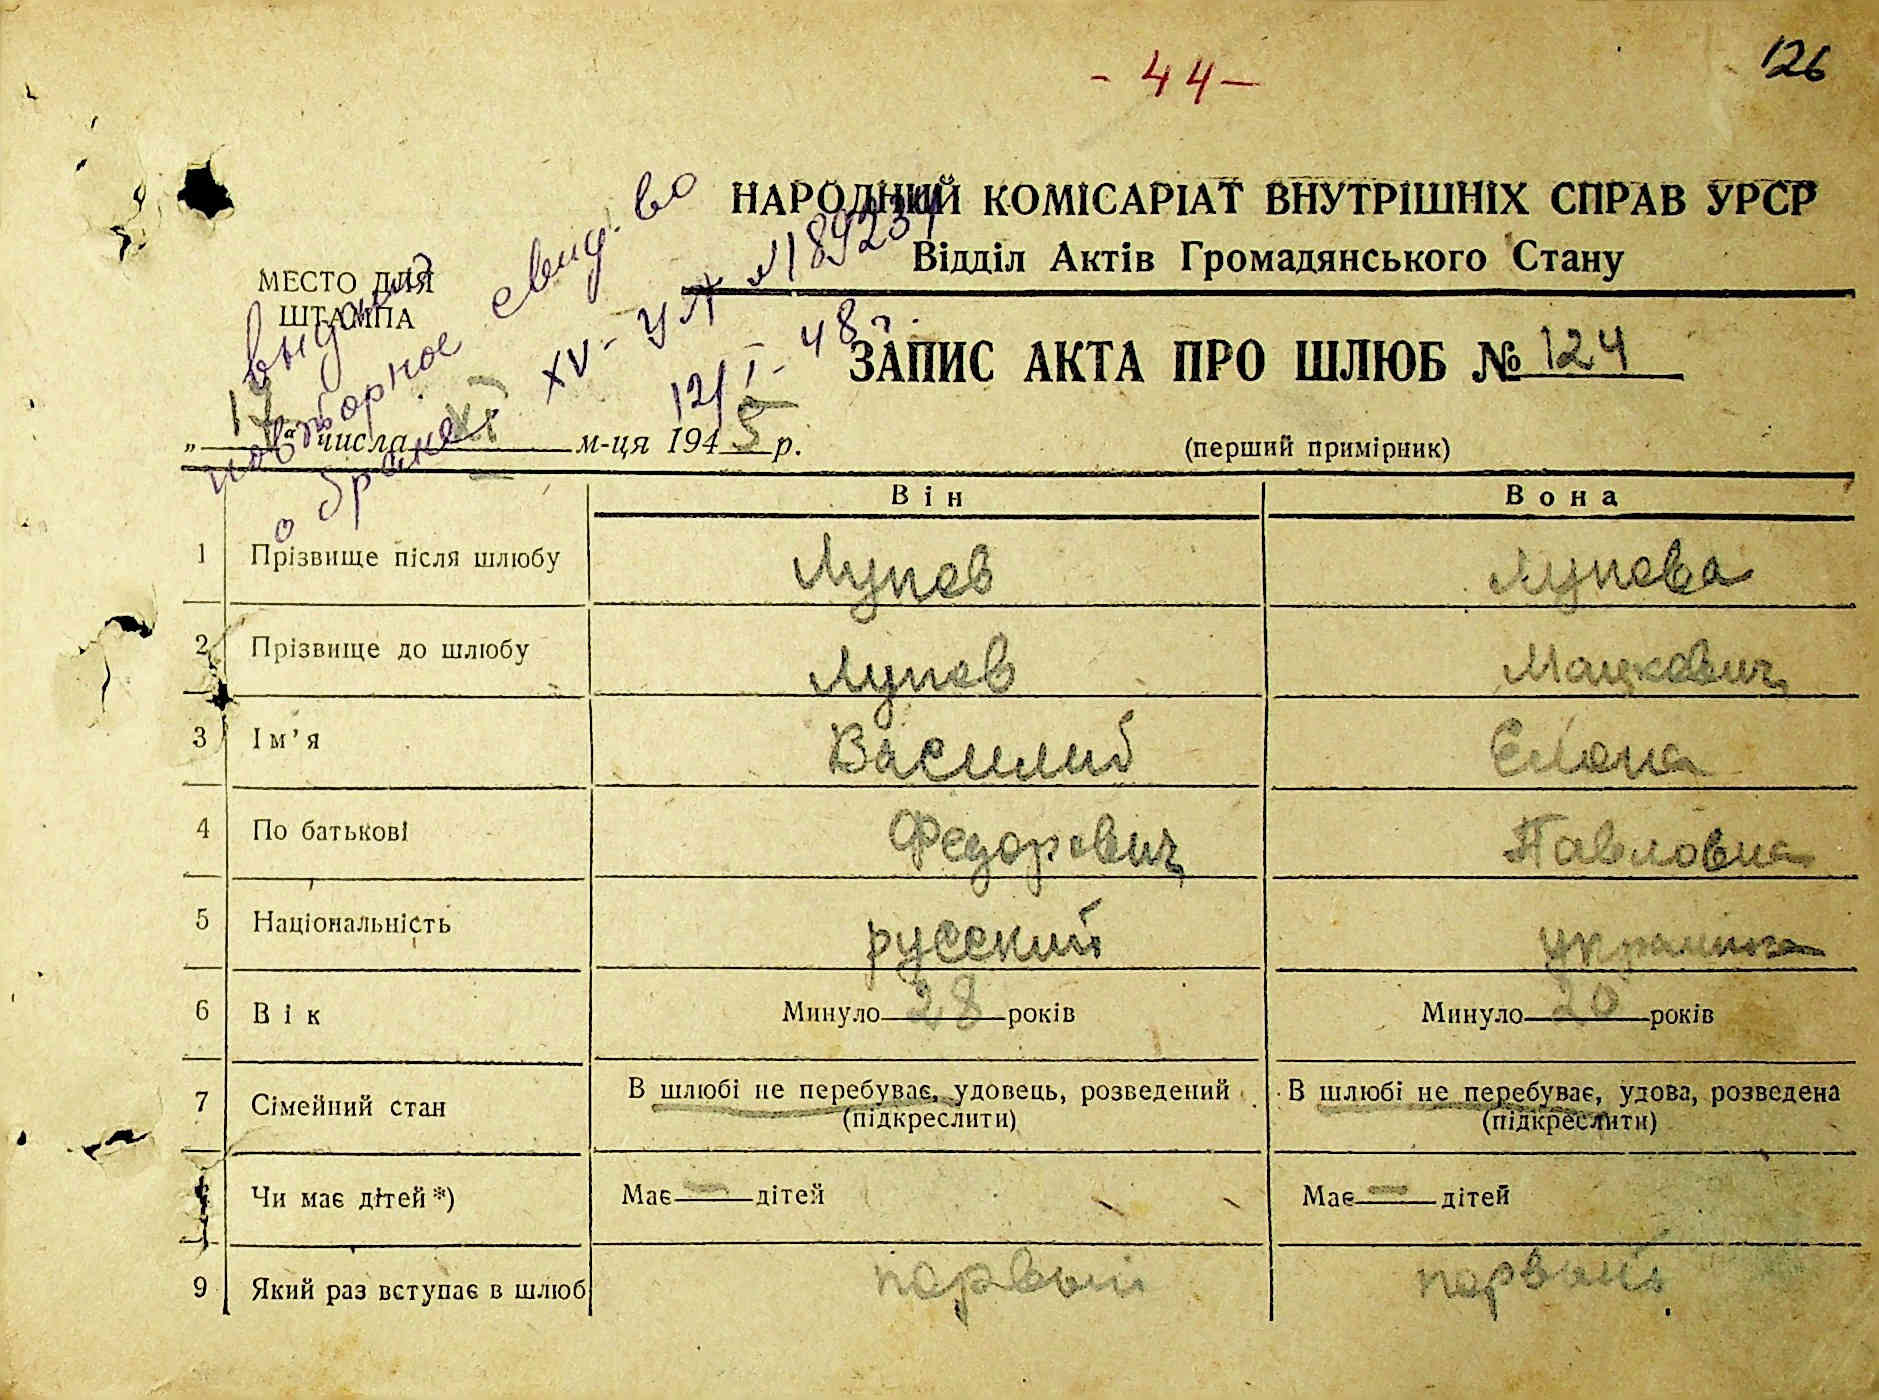 - 44 -
126
НАРОДНИЙ КОМІСАРІАТ ВНУТРІШНІХ СПРАВ УРСР
Відділ Актів Громадянського Стану
МЕСТО ДЛЯ
ШТАМПА
выдано
повторное свид-во
о браке
XV-УЛ №189234
12/I-48 г.
ЗАПИС АКТА ПРО ШЛЮБ № 124
„17“ числа XI м-ця 1945 р.
(перший примірник)
Він Вона
1 Прізвище після шлюбу Лупов Лупова
2 Прізвище до шлюбу Лупов Мацкевич
3 Ім’я Василий Елена
4 По батькові Федорович Павловна
5 Національність русский украинка
6 Вік Минуло 28 років Минуло 20 років
7 Сімейний стан В шлюбі не перебуває, удовець, розведений В шлюбі не перебуває, удова, розведена
(підкреслити) (підкреслити)
Чи має дітей *) Має — дітей Має — дітей
9 Який раз вступає в шлюб первый первый